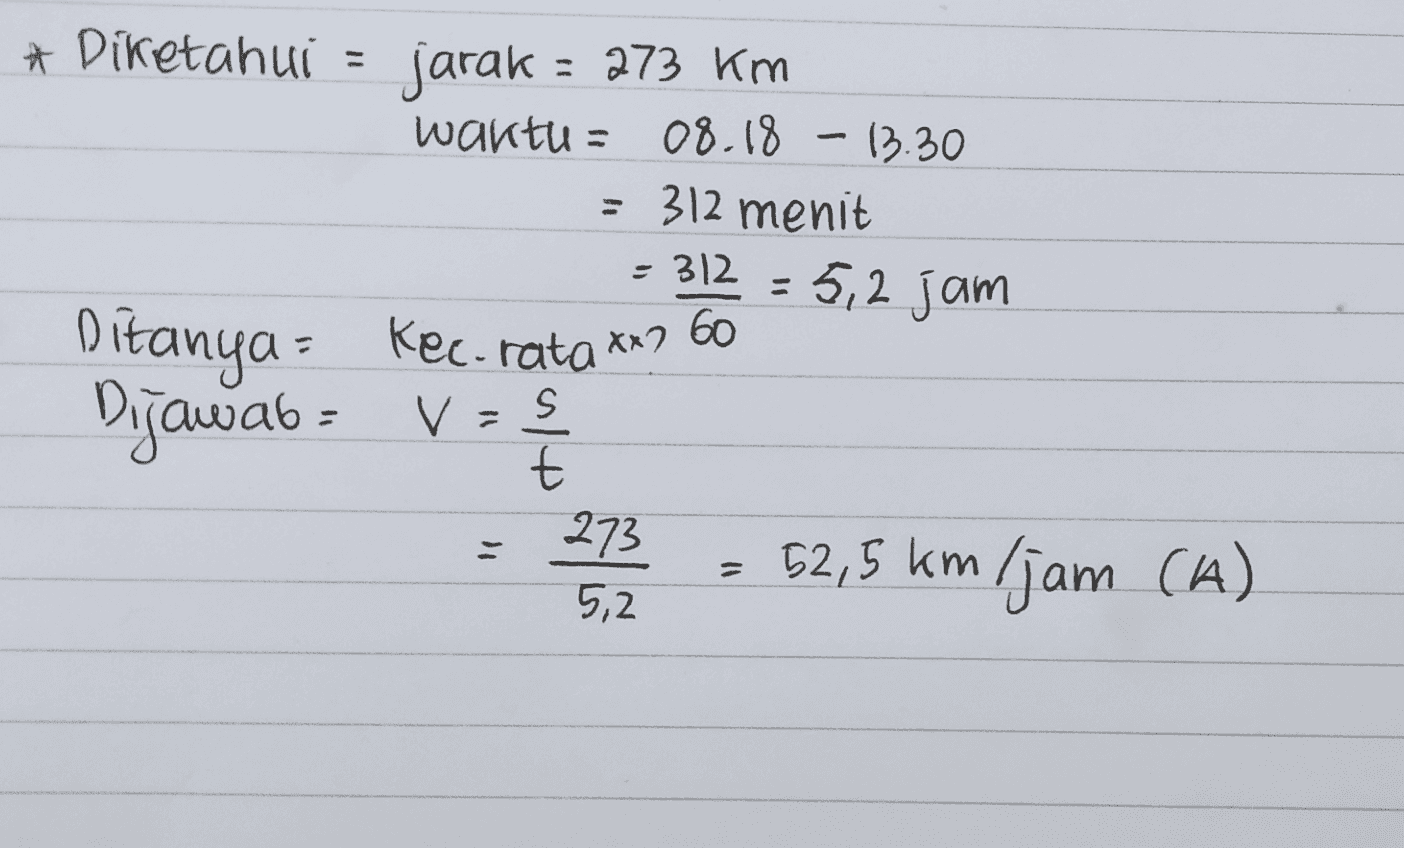 * Diketahui = jarak = 273 Km
waktu = 08.18 - 13.30
= 312 menit
= 312/60 = 5,2 jam
Ditanya = Kec. rata xx?
Dijawab = V = s/t
= 273/5,2 = 52,5 km/jam (A)